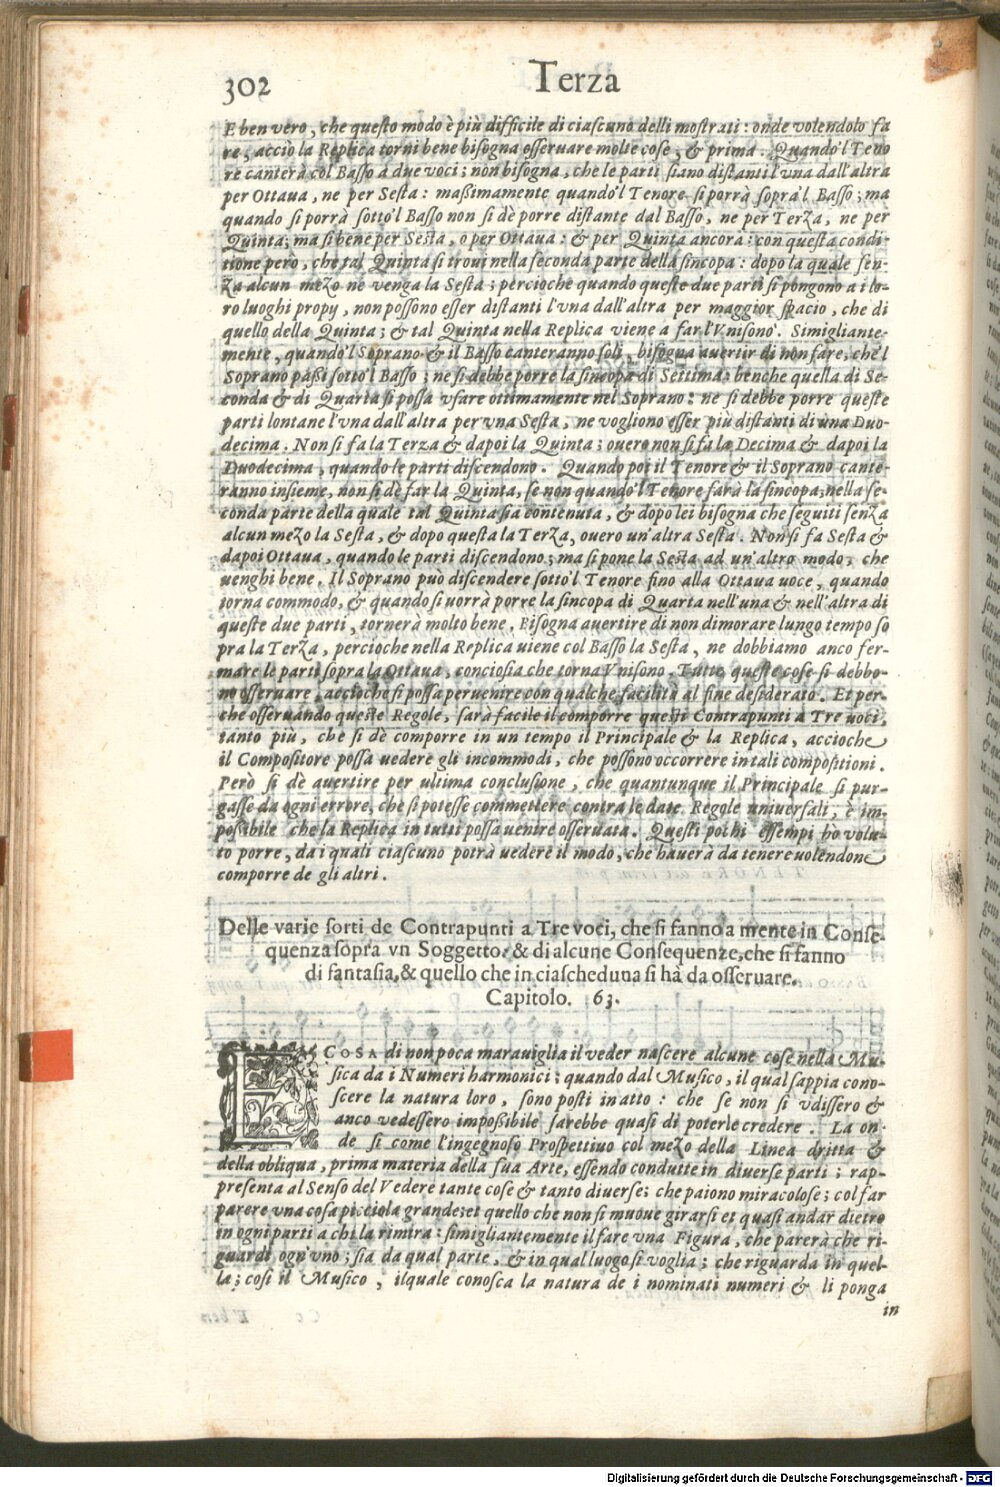 302
Terza
E ben vero, che questo modo è più difficile di ciascuno delli mostrati: onde volendolo fa
re, acciò la Replica torni bene bisogna osseruare molte cose, & prima. Quando'l Teno
re canterà col Basso à due voci; non bisogna, che le parti siano distanti l'vna dall'altra
per Ottaua, ne per Sesta: maßimamente quando'l Tenore si porrà sopra'l Basso; ma
quando si porrà sotto'l Basso non si dè porre distante dal Basso, ne per Terza, ne per
Quinta; ma si bene per Sesta, o per Ottaua: & per Quinta ancora: con questa condi-
tione però, che tal Quinta si troui nella seconda parte della sincopa: dopo la quale sen-
za alcun mezo ne venga la Sesta; percioche quando queste due parti si pongono a i lo-
ro luoghi propy, non possono esser distanti l'vna dall'altra per maggior spacio, che di
quello della Quinta; & tal Quinta nella Replica viene a far l'Vnisono. Simigliante-
mente, quando'l Soprano & il Basso canteranno soli, bisogna auertir di non fare, che'l
Soprano paßi sotto'l Basso; ne si debbe porre la sincopa di Settima; benche quella di Se-
conda & di Quarta si possa vsare ottimamente nel Soprano: ne si debbe porre queste
parti lontane l'vna dall'altra per vna Sesta, ne vogliono esser più distanti di una Duo-
decima. Non si fa la Terza & dapoi la Quinta; ouero non si fa la Decima & dapoi la
Duodecima, quando le parti discendono. Quando poi il Tenore & il Soprano cante-
ranno insieme, non si dè far la Quinta, se non quando'l Tenore farà la sincopa; nella se-
conda parte della quale tal Quinta sia contenuta, & dopo lei bisogna che seguiti senza
alcun mezo la Sesta, & dopo questa la Terza, ouero un'altra Sesta. Non si fa Sesta &
dapoi Ottaua, quando le parti discendono; ma si pone la Sesta ad un'altro modo, che
uenghi bene. Il Soprano può discendere sotto'l Tenore fino alla Ottaua uoce, quando
torna commodo, & quando si uorrà porre la sincopa di Quarta nell'una & nell'altra di
queste due parti, tornerà molto bene. Bisogna auertire di non dimorare lungo tempo so
pra la Terza, percioche nella Replica uiene col Basso la Sesta, ne dobbiamo anco fer-
mare le parti sopra la Ottaua, conciosia che torna Vnisono. Tutte queste cose si debbo-
no osseruare, accioche si possa peruenire con qualche facilità al fine desiderato. Et per-
che osseruando queste Regole, sarà facile il comporre questi Contrapunti a Tre uoci,
tanto più, che si dè comporre in un tempo il Principale & la Replica, accioche
il Compositore possa uedere gli incommodi, che possono occorrere in tali compositioni.
Però si dè auertire per ultima conclusione, che quantunque il Principale si pur-
gasse da ogni errore, che si potesse commettere contra le date Regole uniuersali, è im-
poßibile che la Replica in tutti possa uenire osseruata. Questi pochi essempi hò volu-
to porre, da i quali ciascuno potrà uedere il modo, che hauerà da tenere uolendone
comporre de gli altri.
Delle varie sorti de Contrapunti a Tre voci, che si fanno a mente in Conse-
quenza sopra vn Soggetto: & di alcune Consequenze, che si fanno
di fantasia, & quello che in ciascheduna si hà da osseruare.
Capitolo. 63.
E COSA di non poca marauiglia il veder nascere alcune cose nella Mu-
sica da i Numeri harmonici; quando dal Musico, il qual sappia cono-
scere la natura loro, sono posti in atto: che se non si vdissero &
anco vedessero impoßibile sarebbe quasi di poterle credere. La on-
de si come l'ingegnoso Prospettiuo col mezo della Linea dritta &
della obliqua, prima materia della sua Arte, essendo condutte in diuerse parti; rap-
presenta al Senso del Vedere tante cose & tanto diuerse; che paiono miracolose; col far
parere vna cosa picciola grande; et quello che non si muoue girarsi et quasi andar dietro
in ogni parti a chi la rimira: simigliantemente il fare vna Figura, che parerà che ri-
guardi ogn'vno; sia da qual parte, & in qual luogo si voglia; che riguarda in quel-
la; cosi il Musico, ilquale conosca la natura de i nominati numeri & li ponga
in
Digitalisierung gefördert durch die Deutsche Forschungsgemeinschaft - DFG